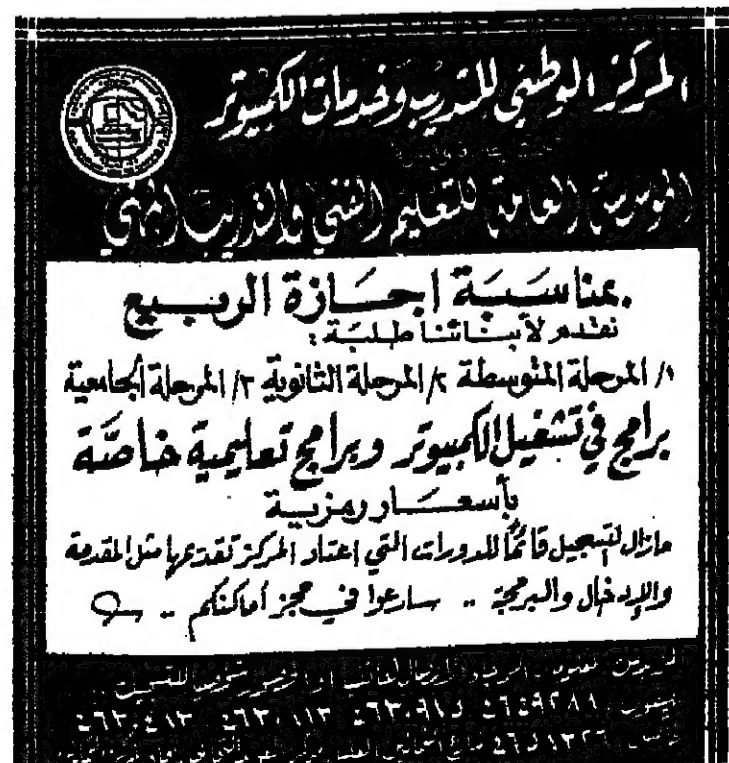 المركز الوطني للتدريب وخدمات الكمبيوتر
المؤسسة العامة للتعليم الفني والتدريب المهني
بمناسبة اجازة الربيع
نقدم لأبنائنا طلبة :
١/ المرحلة المتوسطة ٢/ المرحلة الثانوية ٣/ المرحلة الجامعية
برامج في تشغيل الكمبيوتر وبرامج تعليمية خاصة
بأسعار رمزية
مازال التسجيل قائماً للدورات التي اعتاد المركز تقديمها مثل المقدمة
والإدخال والبرمجة .. سارعوا في حجز أماكنكم ..
٤٦٣٠٤١٣ ٤٦٣٠١١٣